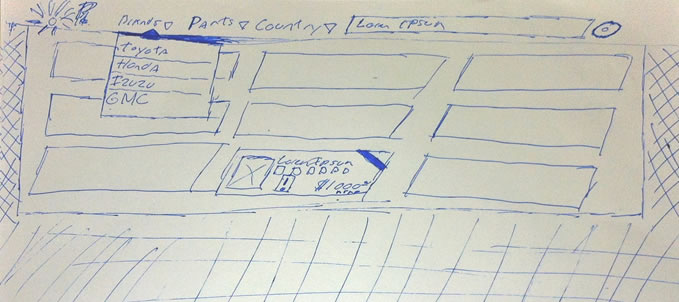 Brands Parts Country Lorem Epsum
Toyota
Honda
Izuzu
GMC
Lorem Epsum
$1000